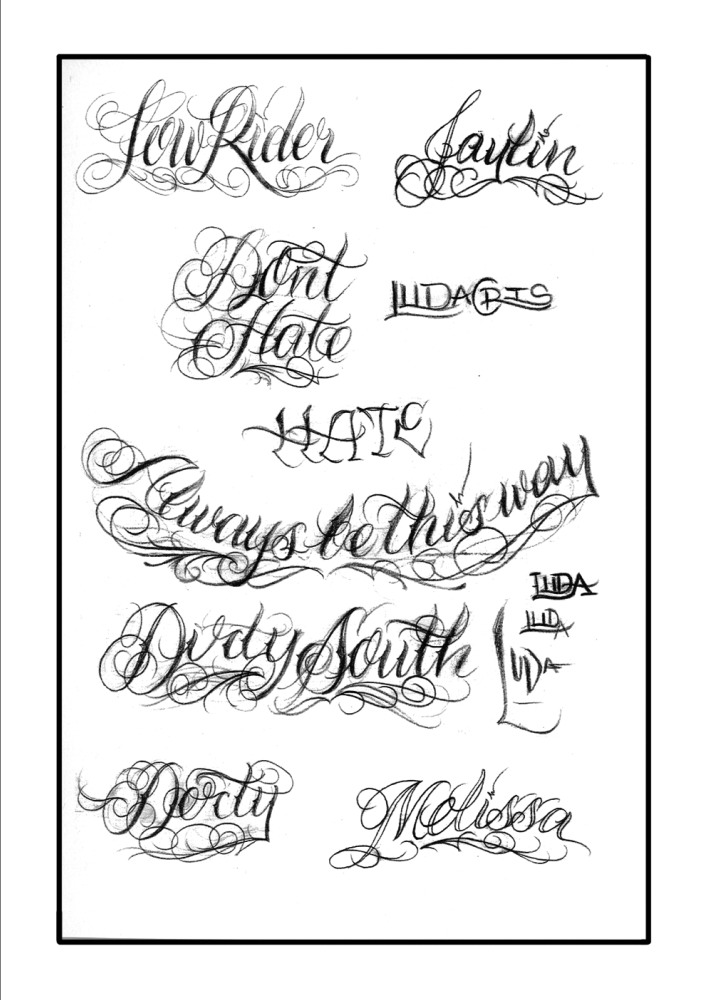 LowRider
Jaylin
Dont
Hate
LUDACRIS
HATE
Always be this way
LUDA
LUDA
LUDA
Dirty South
Melissa